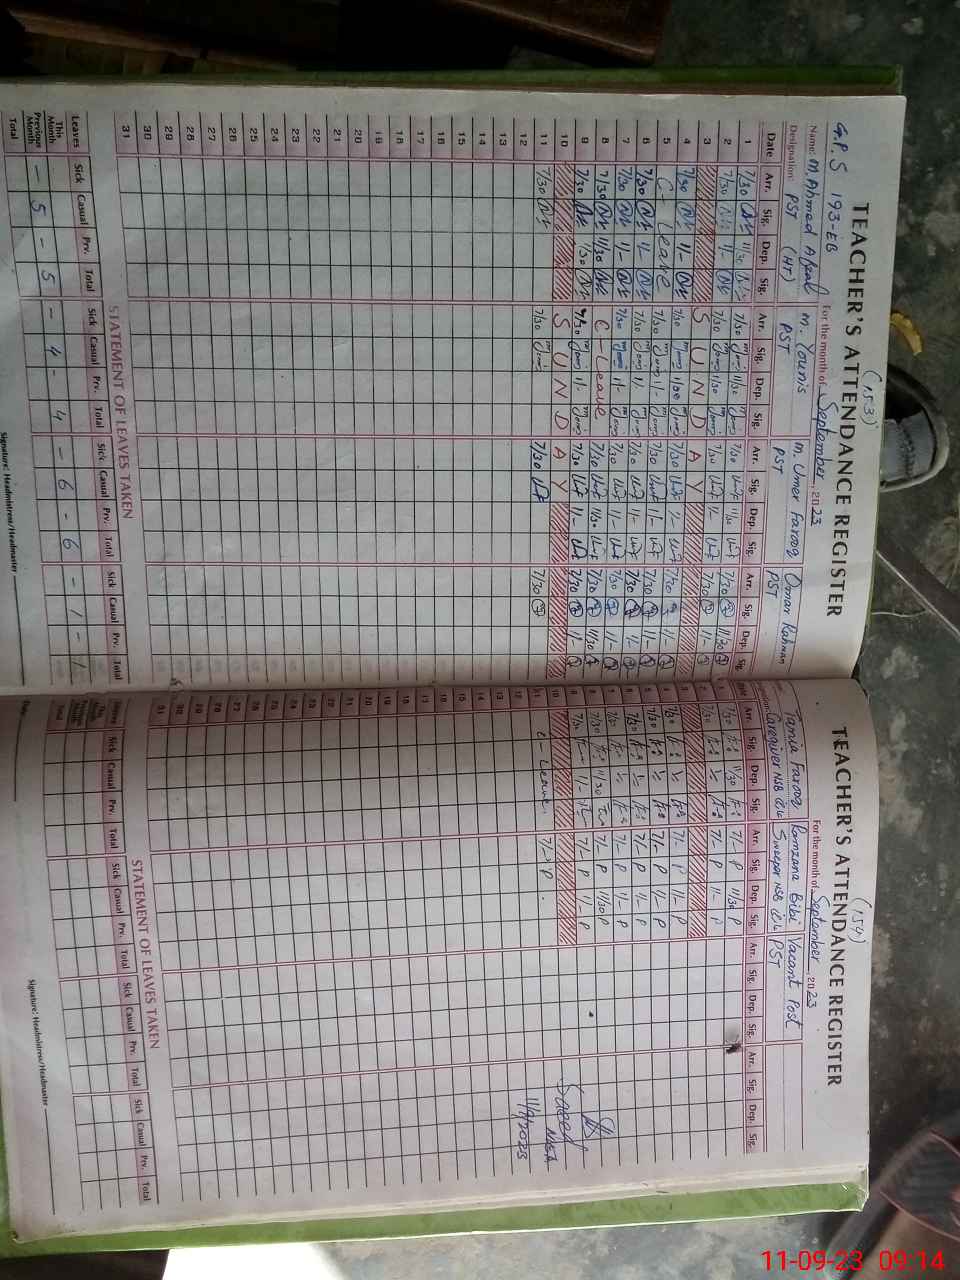 (153)
TEACHER'S ATTENDANCE REGISTER
G.P.S 193-EB
For the month of September, 2023
Name: M. Ahmed Afzal M. Younis M. Umer Farooq Omar Rahman
Designation: PST (HT) PST PST PST
Date Arr. Sig. Dep. Sig. Arr. Sig. Dep. Sig. Arr. Sig. Dep. Sig. Arr. Sig. Dep. Sig.
1 7/30 11/30 7/30 11/30 7/30 11/30 7/30 11/30
2 7/30 11/- 7/30 11/30 7/30 11/- 7/30 11/-
3 S U N D A Y
4 7/30 11/- 7/30 11/30 7/30 11/-
5 C - Leave 7/30 11/- 7/30 11/- 7/30 11/-
6 7/30 11/- 7/30 11/- 7/30 11/- 7/30 11/-
7 7/30 11/- 7/30 11/- 7/30 11/- 7/30 11/-
8 7/30 11/30 C - Leave 7/30 11/30 7/30 11/-
9 7/30 7/30 11/- 7/30 11/- 7/30 11/-
10 S U N D A Y
11 7/30 7/30 7/30 7/30
12
13
14
15
16
17
18
19
20
21
22
23
24
25
26
27
28
29
30
31
STATEMENT OF LEAVES TAKEN
Leaves Sick Casual Prv. Total Sick Casual Prv. Total Sick Casual Prv. Total Sick Casual Prv. Total
This Month - 5 - 5 - 4 - 4 - 6 - 6 - 1 - 1
Previous Month
Total
Signature: Headmistress/Headmaster
(154)
TEACHER'S ATTENDANCE REGISTER
For the month of September, 2023
Tania Farooq Ramzana Bibi Vacant Post
Caregiver NSB Sweeper NSB PST
Date Arr. Sig. Dep. Sig. Arr. Sig. Dep. Sig. Arr. Sig. Dep. Sig. Arr. Sig. Dep. Sig.
1 7/30 11/30 7/- P 11/30 P
2 7/30 7/- P 11/- P
3
4 7/30 7/- P 11/- P
5 7/30 7/- P 11/- P
6 7/30 7/- P 11/- P
7 7/30 7/- P 11/- P
8 7/30 11/30 7/- P 11/30 P
9 7/30 11/- 7/- P 11/- P
10
11 C - Leave 7/- P
12
13
14
15
16
17
18
19
20
21
22
23
24
25
26
27
28
29
30
31
Saeed
11/9/2023
STATEMENT OF LEAVES TAKEN
Leaves Sick Casual Prv. Total Sick Casual Prv. Total Sick Casual Prv. Total Sick Casual Prv. Total
This Month
Previous Month
Total
Signature: Headmistress/Headmaster
11-09-23 09:14